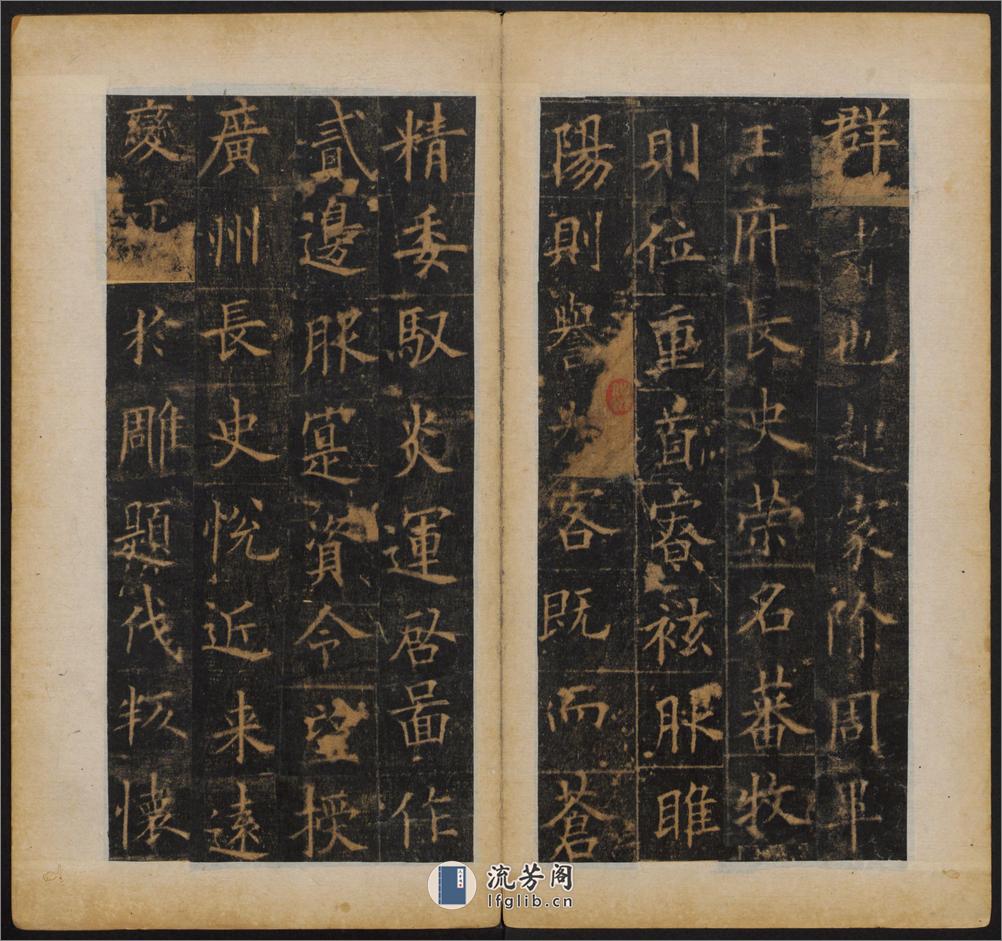 群者也起家除周平
王府長史荣名蕃牧
則位重首寮袨服睢
陽則譽光客既而蒼
精委馭炎運啓啚作
貳邊服寔資令望授
廣州長史悅近来遠
變於雕題伐叛懷
流芳阁
lfglib.cn